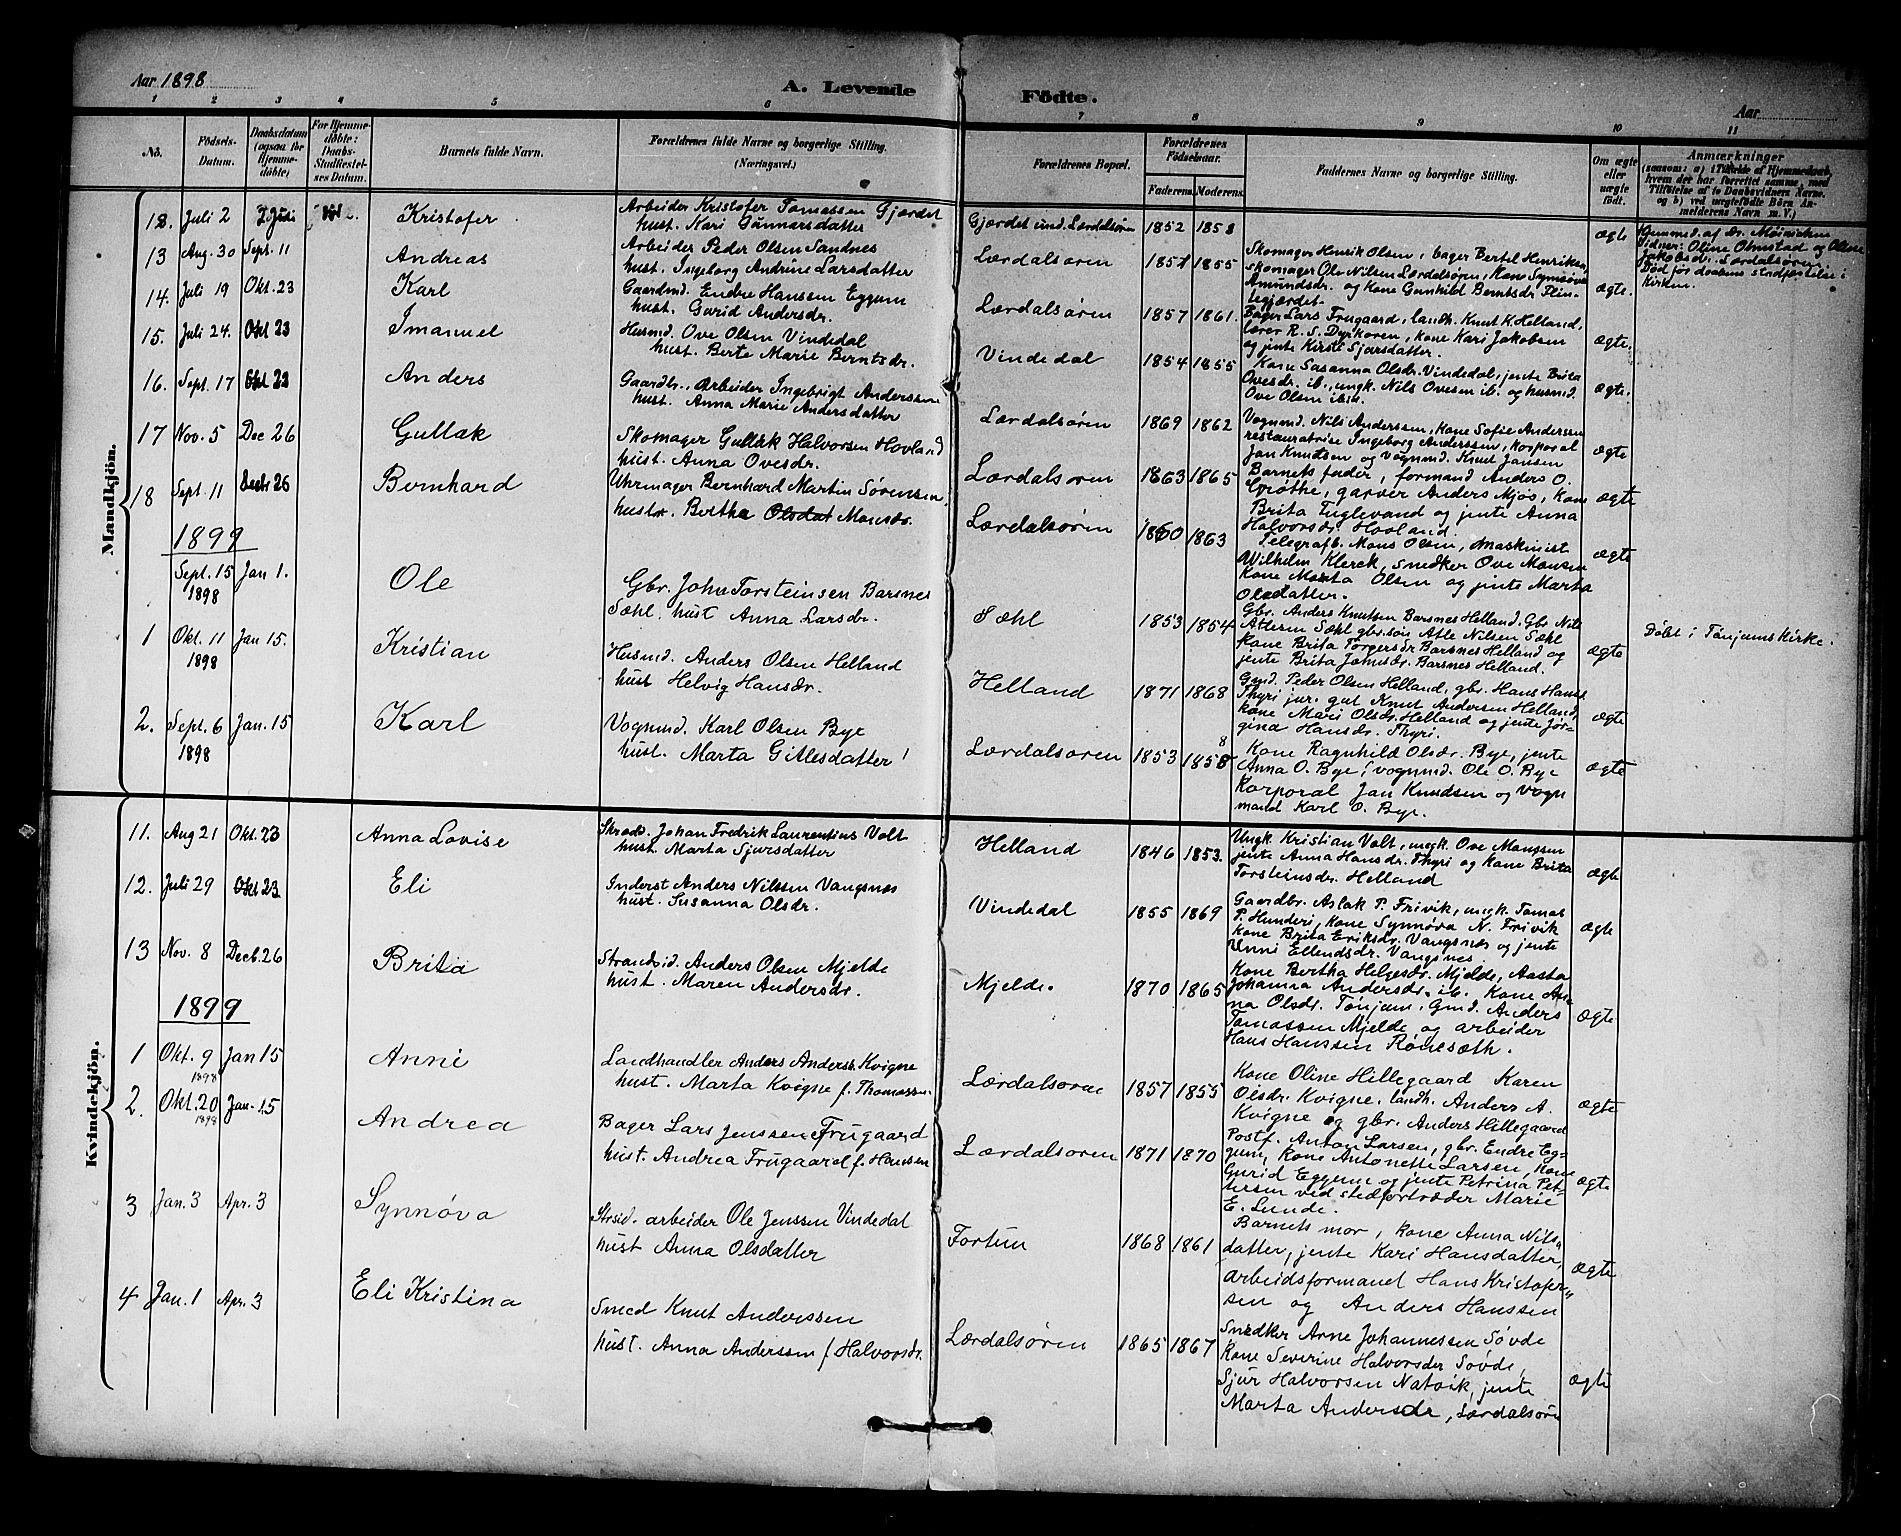 Aar 1898
A. Levende Födte.
Aar
1 2 3 4 5 6 7 8 9 10 11
No.
Födsels-Datum.
Daabsdatum (ogsaa for Hjemmedöbte)
For Hjemmedöbte: Daabs-Stadfæstelses Datum.
Barnets fulde Navn.
Forældrenes fulde Navne og borgerlige Stilling. (Næringsvei.)
Forældrenes Bopæl.
Forældrenes Födselsaar.
Faderens. Moderens.
Faddernes Navne og borgerlige Stilling.
Om ægte eller uægte födt.
Anmærkninger
(saasom: a) Tilfælde af Hjemmedaab, hvem der har forrettet samme, med Tilföielse af to Daabsvidners Navne, og b) ved uægtefödte Börn Anmelderens Navn m. V.)
Mandkjön.
12. Juli 2 Kristofer
Arbeider Kristofer Tomassen Gjærdet
hust. Kari Gunnarsdatter
Gjærdet und. Lærdalsøren 1852 1858 ægte
Hjemmed. af Dr. Møinichen
Vidner: Oline Olmstad og Oline
Jakobsdr. Lærdalsøren.
Død før daabens stadfæstelse i
Kirken.
13 Aug. 30 Sept. 11 Andreas
Arbeider Peder Olsen Sandnes
hust. Ingeborg Andrine Larsdatter
Lærdalsøren 1851 1855 ægte.
Skomager Henrik Olsen, bager Bertel Henriksen,
Skomager Ole Nilsen Lærdalsøren, Kone Synnøve
Amundsdr. og Kone Gunhild Berntsdr Flin-
tegjærdet.
14. Juli 19 Okt. 23 Karl
Gaardmd. Endre Hanssen Eggum
hust. Gurid Andersdr.
Lærdalsøren 1857 1861. ægte.
Bager Lars Frugaard, landh. Knut K. Helland,
lærer R. S. Dyrkoren, Kone Kari Jakobsen
og jente Kirsti Sjursdatter.
15. Juli 24. Okt 23 Imanuel
Husmd. Ove Olsen Vindedal
hust. Berte Marie Berntsdr.
Vindedal 1854 1855 ægte.
Kone Susanna Olsdr. Vindedal, jente Brita
Ovesdr. ib., ungk. Nils Ovesen ib. og husmd.
Ove Olsen ibid.
16. Sept. 17 Okt 23 Anders
Gaardbr., Arbeider Ingebrigt Anderssen
hust. Anna Marie Andersdatter
Lærdalsøren 1869 1862 ægte
Vognmd. Nils Anderssen, Kone Sofie Anderssen
restauratrise Ingeborg Anderssen, Korporal
Jan Knudsen og Vognmd. Knut Jansen
17 Nov. 5 Dec 26 Gullak
Skomager Gullak Halvorsen Hovland
hust. Anna Ovesdr.
Lærdalsøren 1863 1865 ægte
Barnets fader, formand Anders O.
Grøthe, garver Anders Mjøs, Kone
Brita Fuglevand og jente Anna
Halvorsdr. Hovland.
18 Sept. 11 Decbr 26 Bernhard
Uhrmager Bernhard Martin Sørensen
hustr. Bertha Olsdat Monsdr.
Lærdalsøren 1860 1863 ægte
Telegrafb. Mons Olsen, maskinist
Wilhelm Klerck, snedker Ove Monsen
Kone Marta Olsen og jente Marta
Olsdatter.
1899
Sept. 15 1898 Jan 1. Ole
Gbr. John Torsteinsen Barsnes
Sæhl. hust Anna Larsdr.
Sæhl 1853 1854 ægte
Gbr. Anders Knutsen Barsnes Helland. Gbr Nils
Atlesen Sæhl gbr.søn Atle Nilsen Sæhl
Kone Brita Torgersdr Barsnes Helland og
jente Brita Johnsdr. Barsnes Helland.
Døbt i Tønjums Kirke.
1 Okt. 11 1898 Jan 15. Kristian
Husmd. Anders Olsen Helland
hust Helvig Hansdr.
Helland 1871 1868 ægte
Gmd. Peder Olsen Helland, gbr. Hans Hanss.
Thyri jur. gut Knut Andersen Helland,
kone Mari Olsdr. Helland og jente Jør-
gina Hansdr. Thyri.
2. Sept. 6 1898 Jan. 15 Karl
Vognmd. Karl Olsen Bye
hust. Marta Gitlesdatter
Lærdalsøren 1853 1858 8 ægte
Kone Ragnhild Olsdr. Bye, jente
Anna O. Bye, vognmd. Ole O. Bye
Korporal Jan Knudsen og Vogn
mand Karl O. Bye.
Kvindekjön.
11. Aug 21 Okt. 23 Anna Lovise
Skræd. Johan Fredrik Laurentius Volt
hust. Marta Sjursdatter
Helland 1846 1853. ægte
Ungk. Kristian Volt, ungk. Ove Monssen
jente Anna Hansdr. Thyri og Kone Brita
Torsteinsdr. Helland
12. Juli 29 Okt 23 Eli
Inderst Anders Nilssen Vangsnes
hust. Susanna Olsdr.
Vindedal 1855 1869 ægte
Gaardbr. Aslak P. Frivik, ungk. Tomas
P. Hunderi, Kone Synnøva N. Frivik
Kone Brita Eriksdr. Vangsnes og jente
Unni Ellendsdr. Vangsnes.
13 Nov. 8 Decb. 26 Brita
Strandsid. Anders Olsen Mjelde
hust. Maren Andersdr.
Mjelde. 1870 1865 ægte
Kone Bertha Helgesdr. Mjelde, Aasta
Johanna Andersdr. ib. Kone An-
na Olsdr. Tønjum, Gmd. Anders
Tomassen Mjelde og arbeider
Hans Hanssen Rønesæth.
1899
1 Okt. 9 1898 Jan 15 Anni
Landhandler Anders Anderss. Kvigne
hust. Marta Kvigne f. Thomassen
Lærdalsøren 1857 1855 ægte
Kone Oline Hillegaard Karen
Olsdr. Kvigne, landh. Anders A.
Kvigne og gbr. Anders Hillegaard
2. Okt. 20 1898 Jan. 15 Andrea
Bager Lars Jenssen Frugaard
hust. Andrea Frugaard f. Hanssen
Lærdalsøren 1871 1870 ægte
Postf. Anton Larsen, gbr. Endre Eg-
gum, Kone Antonette Larsen, Kone
Gurid Eggum og jente Petrina Pet-
tersen ved stedfortræder Marie
E. Lunde.
3 Jan. 3 Apr. 3 Synnøva
Strsid. arbeider Ole Jenssen Vindedal
hust Anna Olsdatter
Fortun 1868 1861 ægte
Barnets mor, Kone Anna Nils-
datter, jente Kari Hansdatter
arbeidsformand Hans Kristofer-
sen og Anders Hanssen
4 Jan. 1 Apr. 3 Eli Kristina
Smed Knut Anderssen
hust. Anna Anderssen f Halvorsdr.
Lærdalsøren 1865 1867 ægte
Snedker Arne Johannessen Søvde
Kone Severine Halvorsdr Søvde,
Sjur Halvorsen Natvik, jente
Marta Andersdr, Lærdalsøren